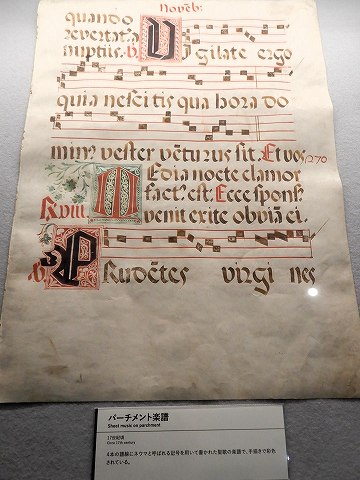 Novēb:
quando
revertat.a
nuptiis. ℟. Vigilate ergo
quia nescitis qua hora do
minꝰ vester vēturus sit. Et vos 270
Media nocte clamor
factꝰ. est. Ecce sponsꝰ
Rviii venit exite obviā ei.
℟. Prudētes virgines
パーチメント楽譜
Sheet music on parchment
17世紀頃
Circa 17th century
4本の譜線にネウマと呼ばれる記号を用いて書かれた聖歌の楽譜で、手描きで彩色
されている。